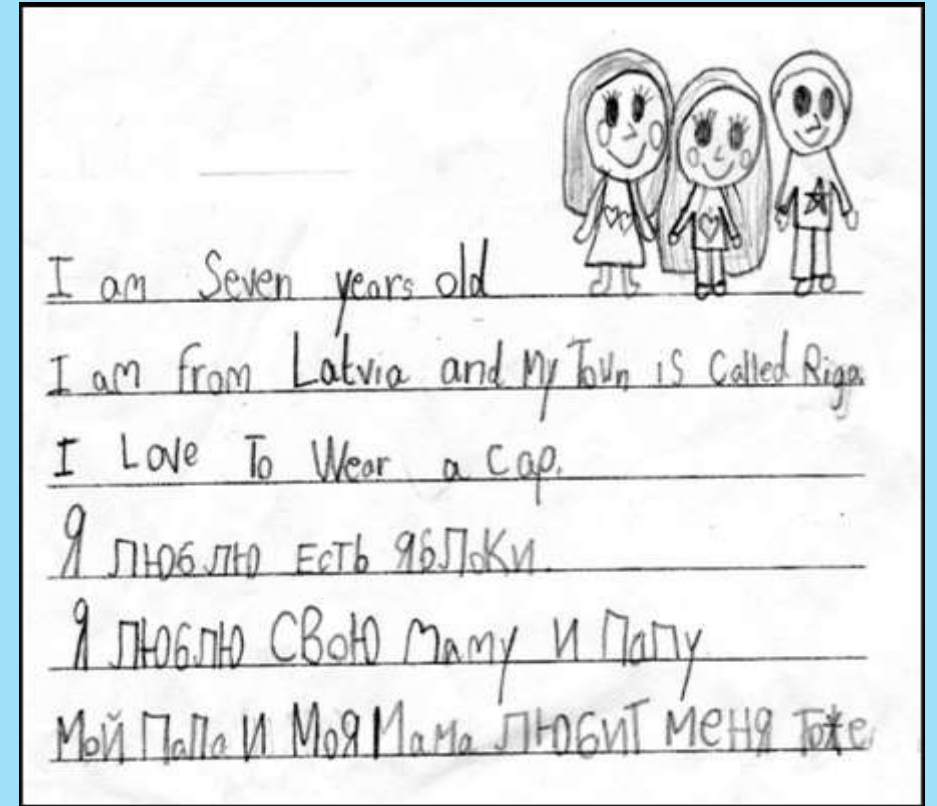 I am Seven years old
I am from Latvia and My Town is Called Riga.
I Love To Wear a cap.
Я люблю есть яблоки.
Я люблю свою маму и папу
Мой папа и моя мама любит меня тоже